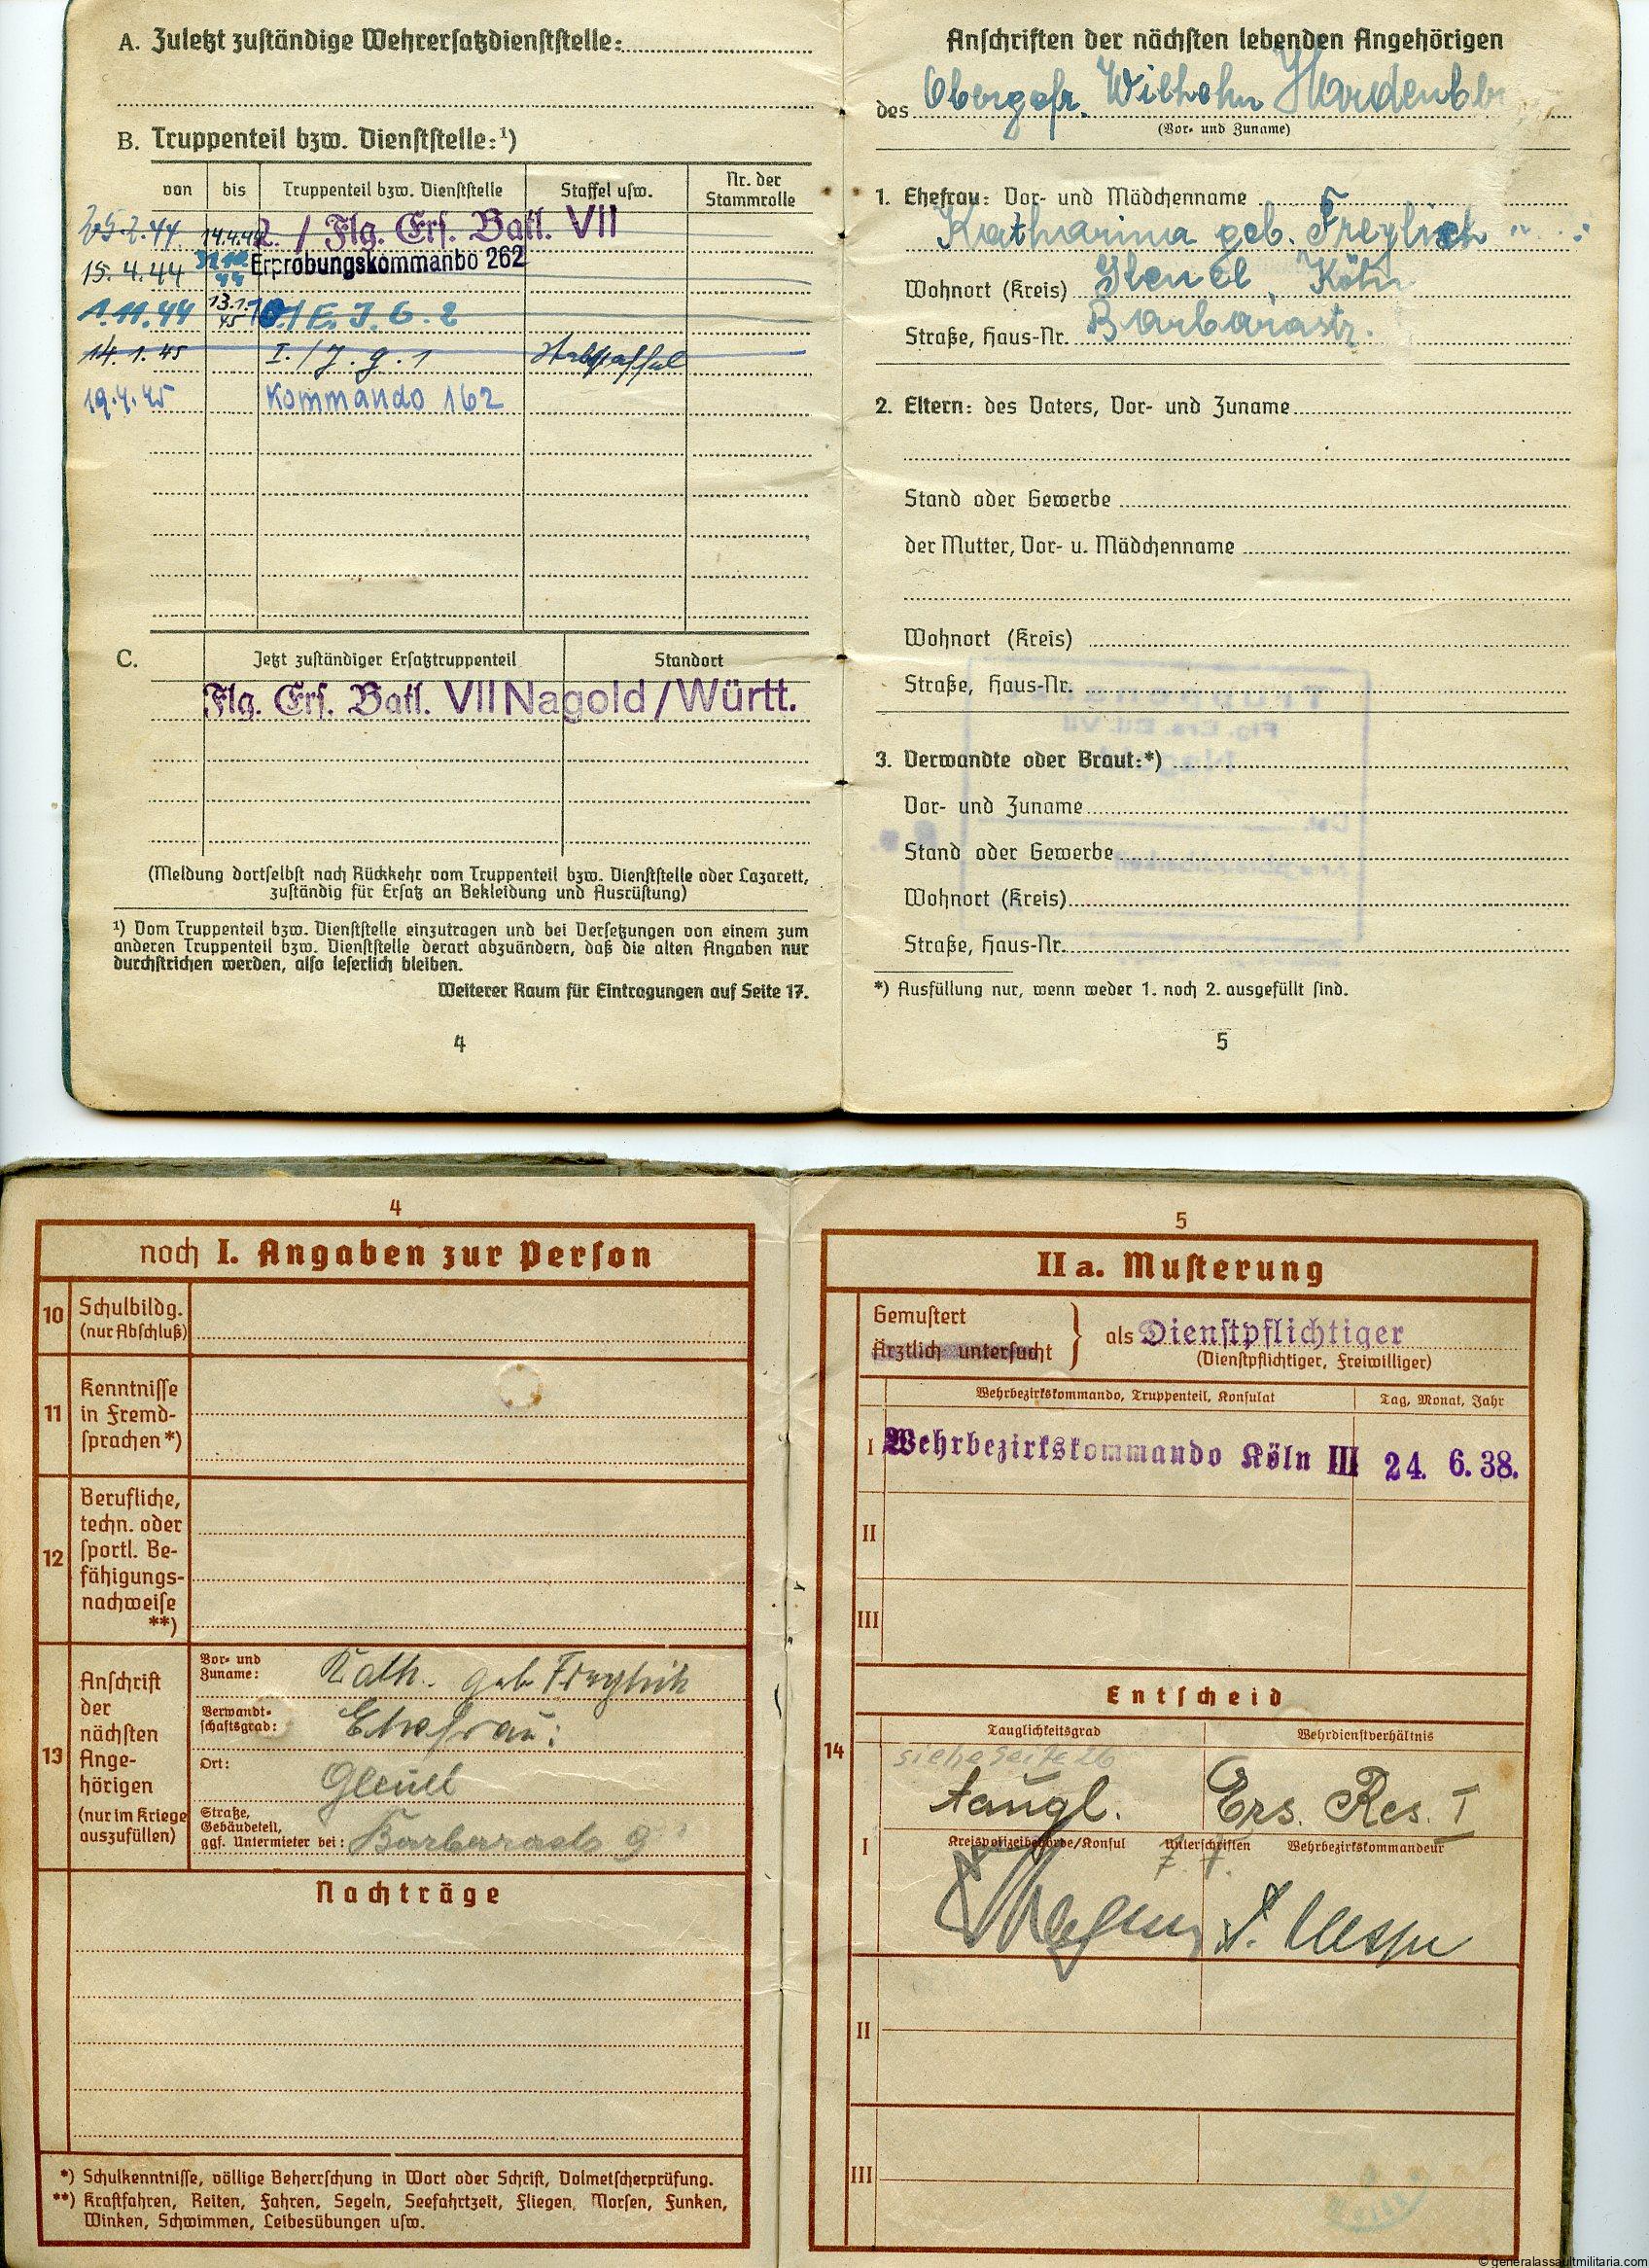 A. Zuletzt zuständige Wehrersatzdienststelle:
B. Truppenteil bzw. Dienststelle:¹)
von bis Truppenteil bzw. Dienststelle Staffel usw. Nr. der Stammrolle
25.2.44 14.4.44 2. / Flg. Ers. Batl. VII
15.4.44 Erprobungskommando 262
1.11.44 13.1.45 E. J. G. 2
14.1.45 I. / J. G. 1 Stabstaffel
19.4.45 Kommando 162
C. Jetzt zuständiger Ersatztruppenteil Standort
Flg. Ers. Batl. VII Nagold / Württ.
(Meldung dortselbst nach Rückkehr vom Truppenteil bzw. Dienststelle oder Lazarett,
zuständig für Ersatz an Bekleidung und Ausrüstung)
¹) Vom Truppenteil bzw. Dienststelle einzutragen und bei Versetzungen von einem zum
anderen Truppenteil bzw. Dienststelle derart abzuändern, daß die alten Angaben nur
durchstrichen werden, also leserlich bleiben.
Weiterer Raum für Eintragungen auf Seite 17.
4
Anschriften der nächsten lebenden Angehörigen
des Obergefr. Wilhelm
(Vor- und Zuname)
1. Ehefrau: Vor- und Mädchenname
Katharina geb. Freylich
Wohnort (Kreis) Gleuel, Köln
Straße, Haus-Nr. Barbarastr.
2. Eltern: des Vaters, Vor- und Zuname
Stand oder Gewerbe
der Mutter, Vor- u. Mädchenname
Wohnort (Kreis)
Straße, Haus-Nr.
3. Verwandte oder Braut:*)
Vor- und Zuname
Stand oder Gewerbe
Wohnort (Kreis)
Straße, Haus-Nr.
*) Ausfüllung nur, wenn weder 1. noch 2. ausgefüllt sind.
5
4
noch I. Angaben zur Person
10 Schulbildg.
(nur Abschluß)
11 Kenntnisse
in Fremd-
sprachen*)
12 Berufliche,
techn. oder
sportl. Be-
fähigungs-
nachweise
**)
13 Anschrift
der
nächsten
Ange-
hörigen
(nur im Kriege
auszufüllen)
Vor- und
Zuname: Kath. geb. Freylich
Verwandt-
schaftsgrad: Ehefrau:
Ort: Gleuel
Straße,
Gebäudeteil,
ggf. Untermieter bei: Barbarastr 9
Nachträge
*) Schulkenntnisse, völlige Beherrschung in Wort oder Schrift, Dolmetscherprüfung.
**) Kraftfahren, Reiten, Fahren, Segeln, Seefahrtzeit, Fliegen, Morsen, Funken,
Winken, Schwimmen, Leibesübungen usw.
5
IIa. Musterung
Gemustert
Ärztlich untersucht
als Dienstpflichtiger
(Dienstpflichtiger, Freiwilliger)
Wehrbezirkskommando, Truppenteil, Konsulat Tag, Monat, Jahr
I Wehrbezirkskommando Köln III 24. 6. 38.
II
III
Entscheid
14
Tauglichkeitsgrad Wehrdienstverhältnis
siehe Seite 26
taugl. Ers. Res. I
I Kreispolizeibehörde/Konsul Unterschriften Wehrbezirkskommandeur
II
III
© generalassaultmilitaria.com